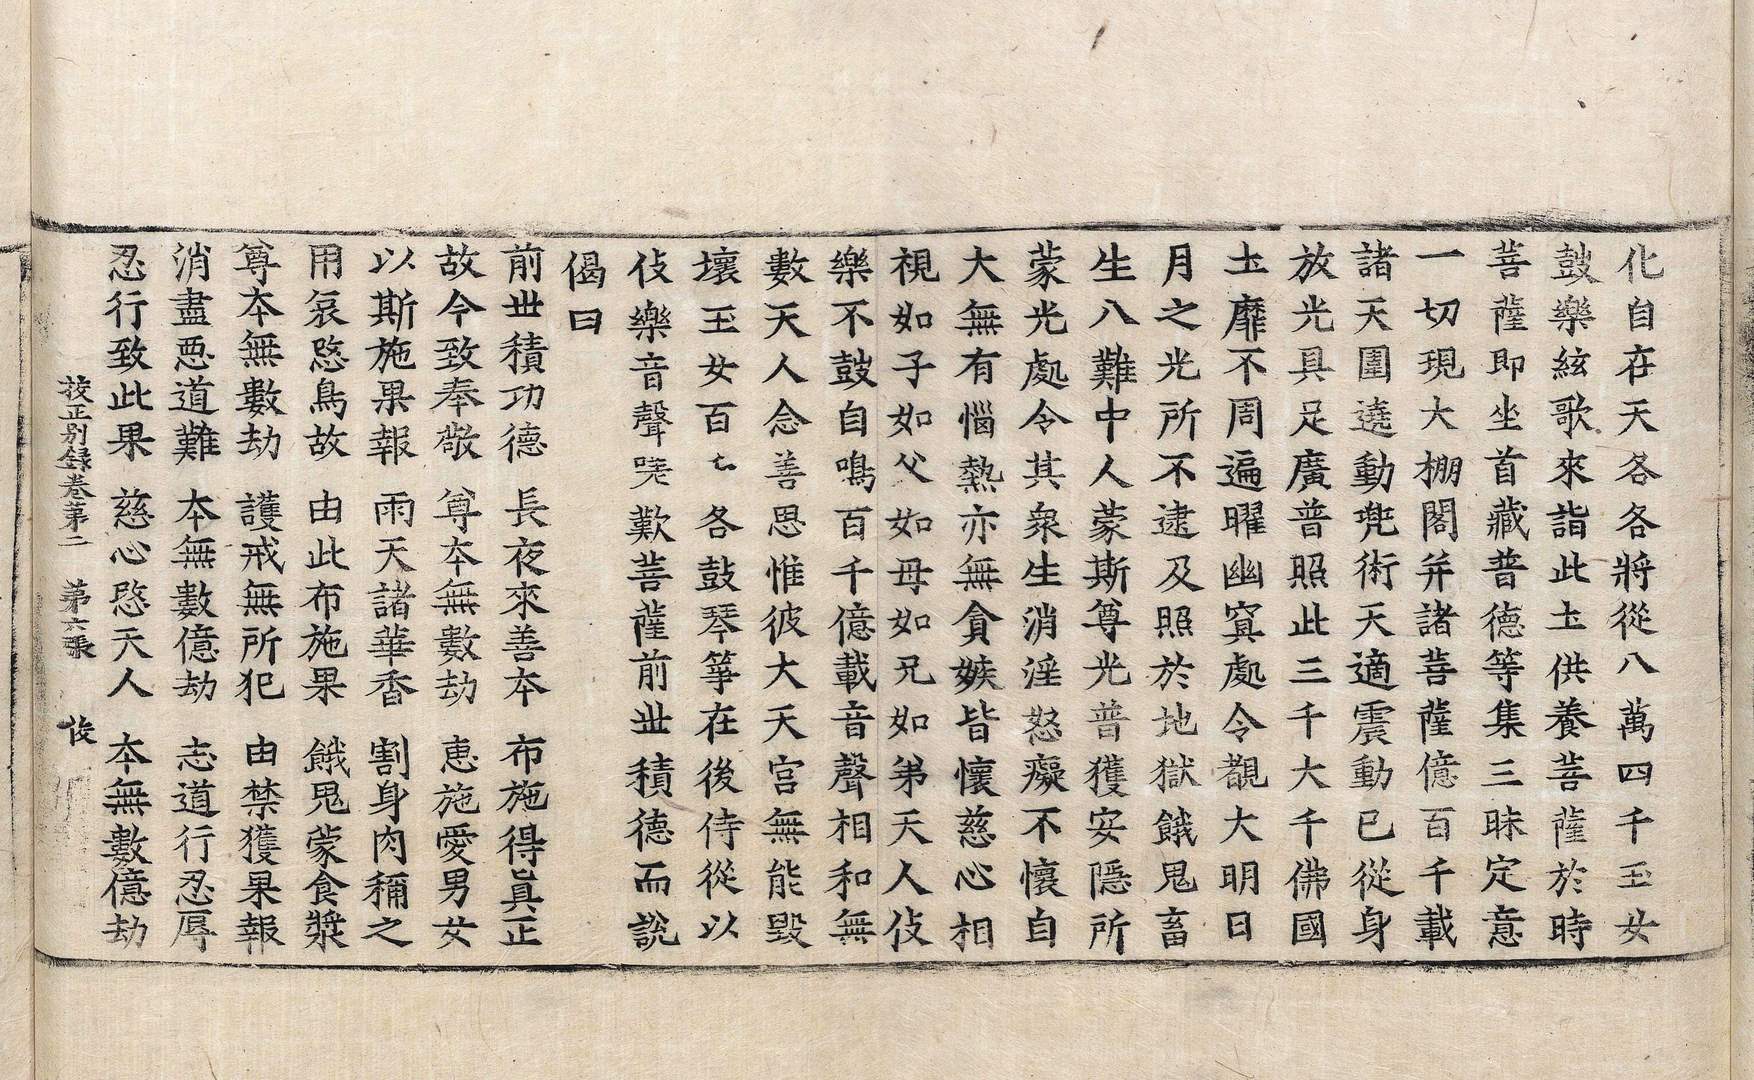 化自在天各各將從八萬四千玉女
鼓樂絃歌來詣此土供養菩薩於時
菩薩即坐首藏普德等集三昧定意
一切現大棚閣并諸菩薩億百千載
諸天圍遶動兠術天適震動已從身
放光具足廣普照此三千大千佛國
土靡不周遍曜幽冥處令覩大明日
月之光所不逮及照於地獄餓鬼畜
生八難中人蒙斯尊光普獲安隱所
蒙光處令其衆生消淫怒癡不懷自
大無有惱熱亦無貪嫉皆懷慈心相
視如子如父如母如兄如弟天人伎
樂不鼓自鳴百千億載音聲相和無
數天人念善思惟彼大天宮無能毀
壞玉女百七各鼓琴筝在後侍從以
伎樂音聲嗟歎菩薩前世積德而說
偈曰
前世積功德 長夜來善本 布施得眞正
故今致奉敬 尊本無數劫 恵施愛男女
以斯施果報 雨天諸華香 割身肉稱之
用哀愍鳥故 由此布施果 餓鬼蒙食漿
尊本無數劫 護戒無所犯 由禁獲果報
消盡惡道難 本無數億劫 志道行忍辱
忍行致此果 慈心愍天人 本無數億劫
挍正別録卷第二 第六張 俊